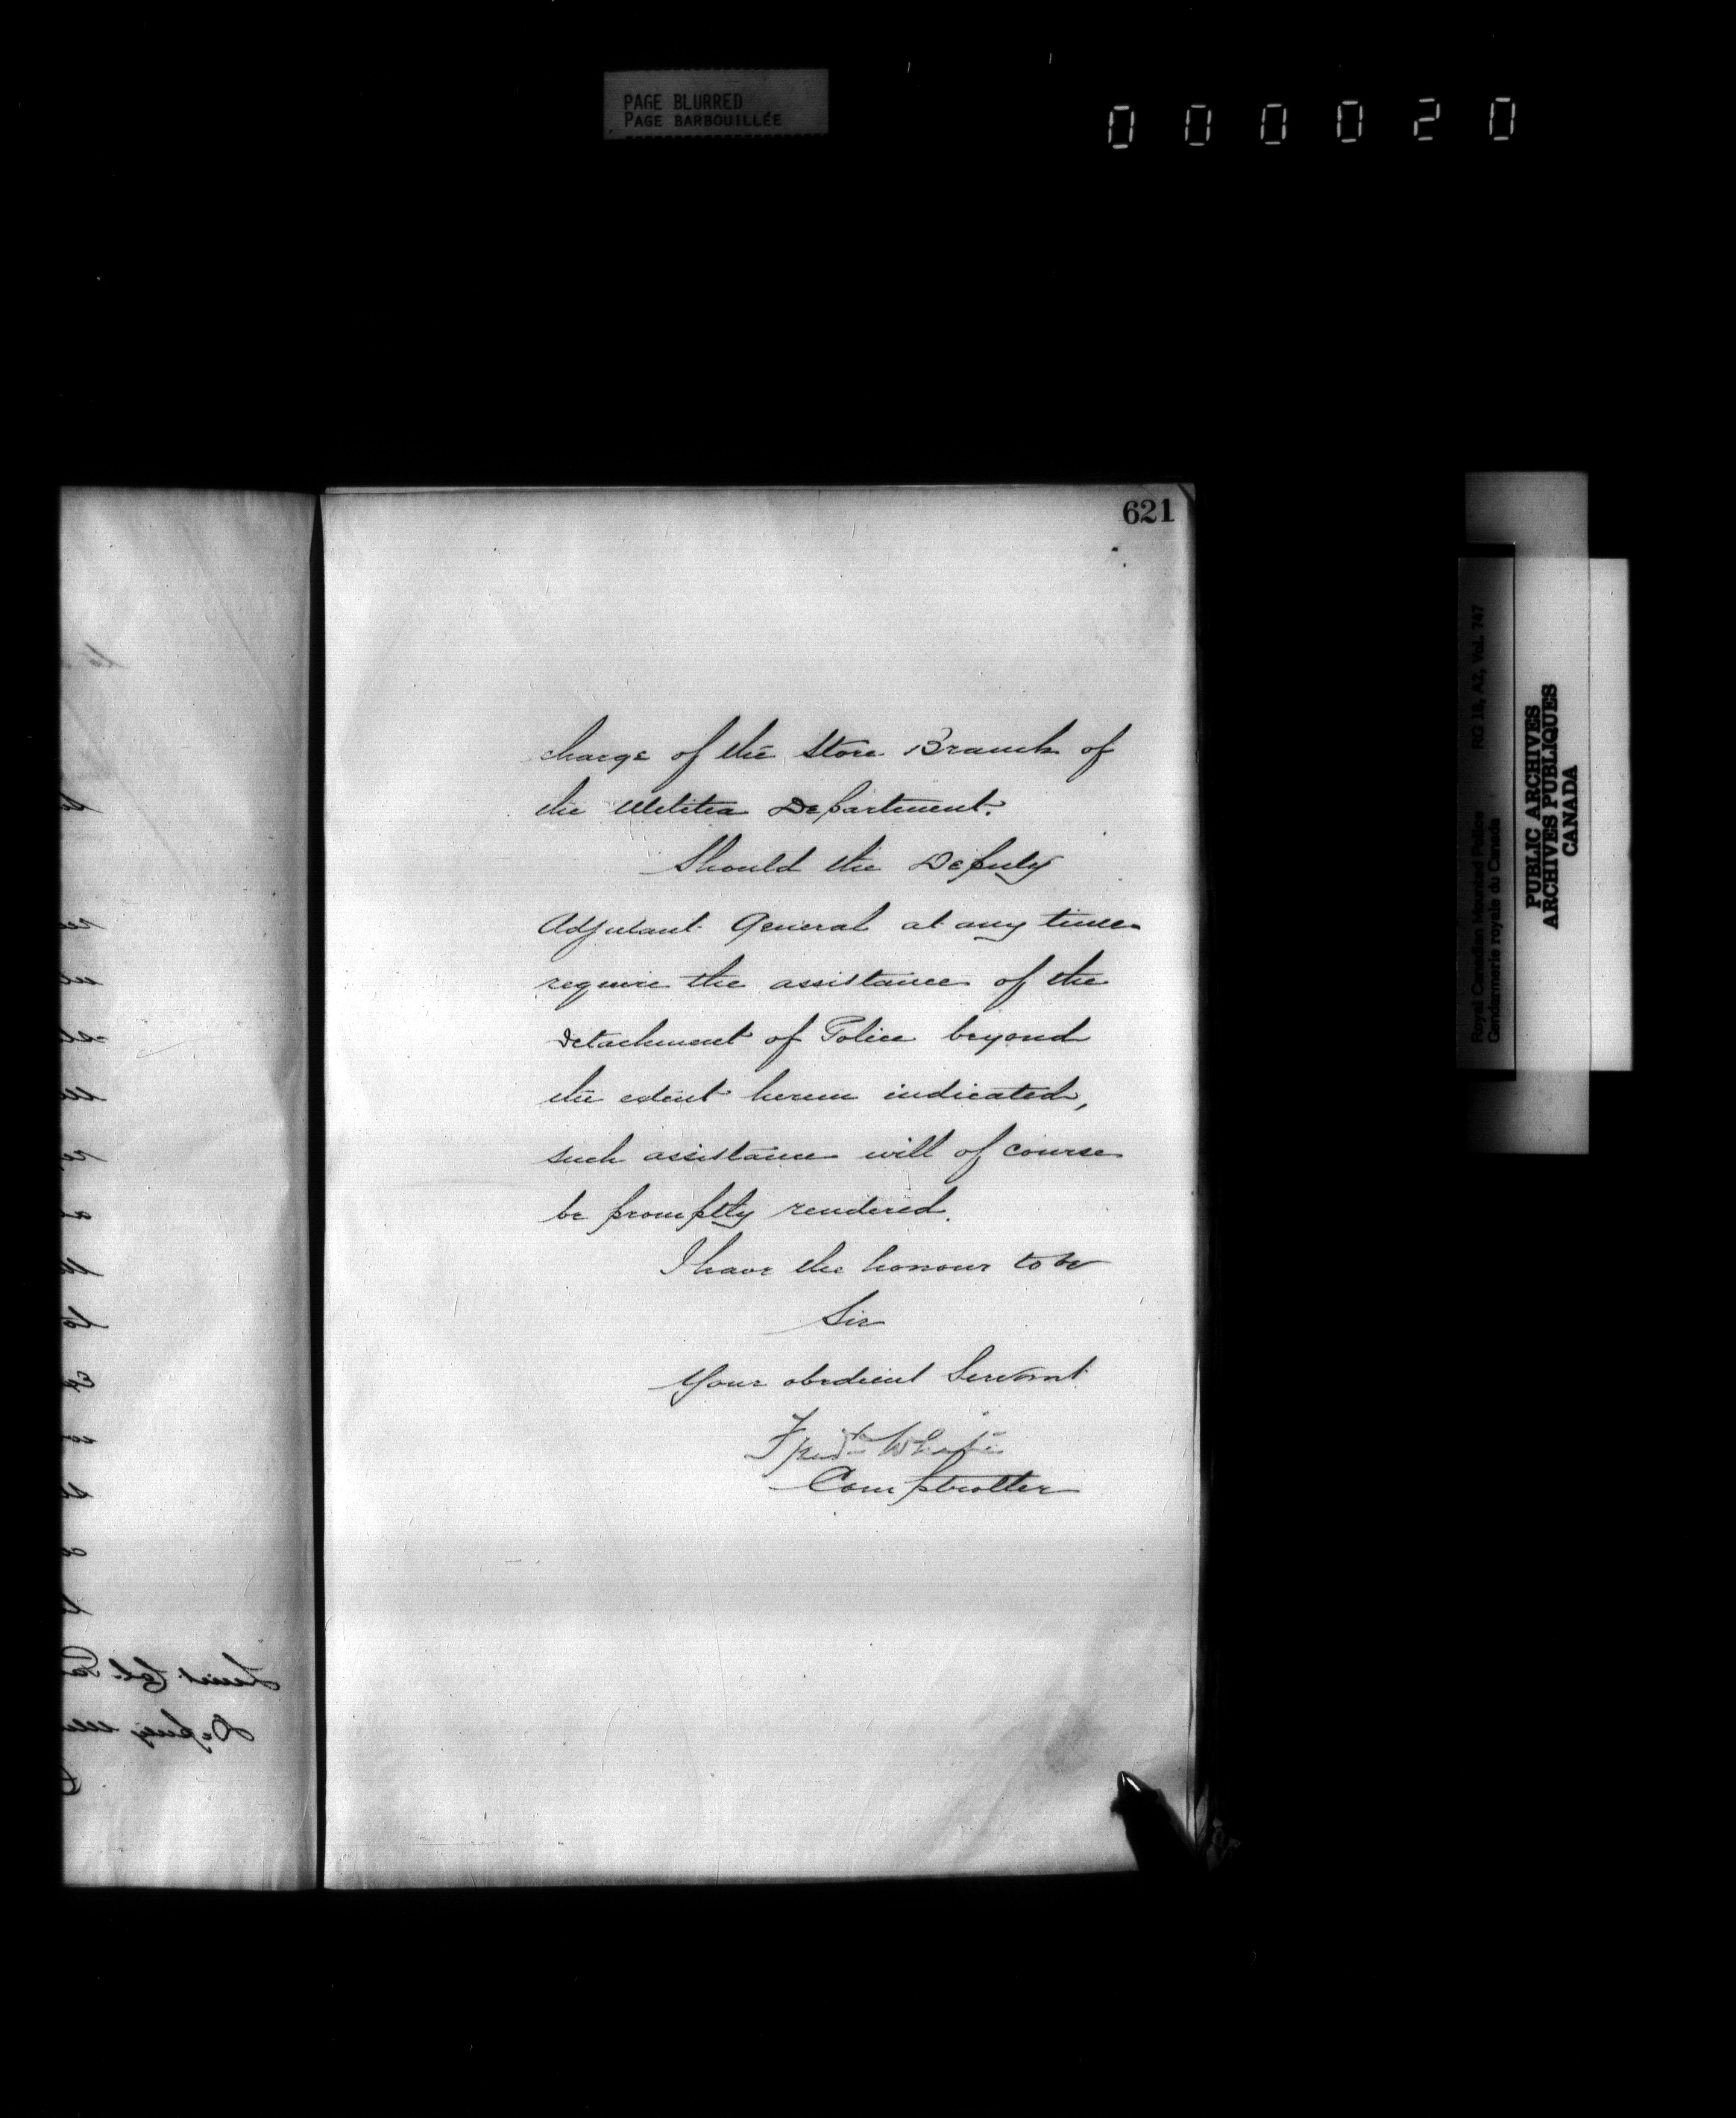 PAGE BLURRED
PAGE BARBOUILLÉE
000020
621
charge of the Store Branch of
the Militia Department.
Should the Deputy
Adjutant General at any time
require the assistance of the
Detachment of Police beyond
the extent herein indicated,
such assistance will of course
be promptly rendered.
I have the honour to be
Sir
Your obedient Servant
Fred White
Comptroller
Lieut. Col. Pa
Deputy
Royal Canadian Mounted Police RG 18, A2, Vol. 747
Gendarmerie royale du Canada
PUBLIC ARCHIVES
ARCHIVES PUBLIQUES
CANADA